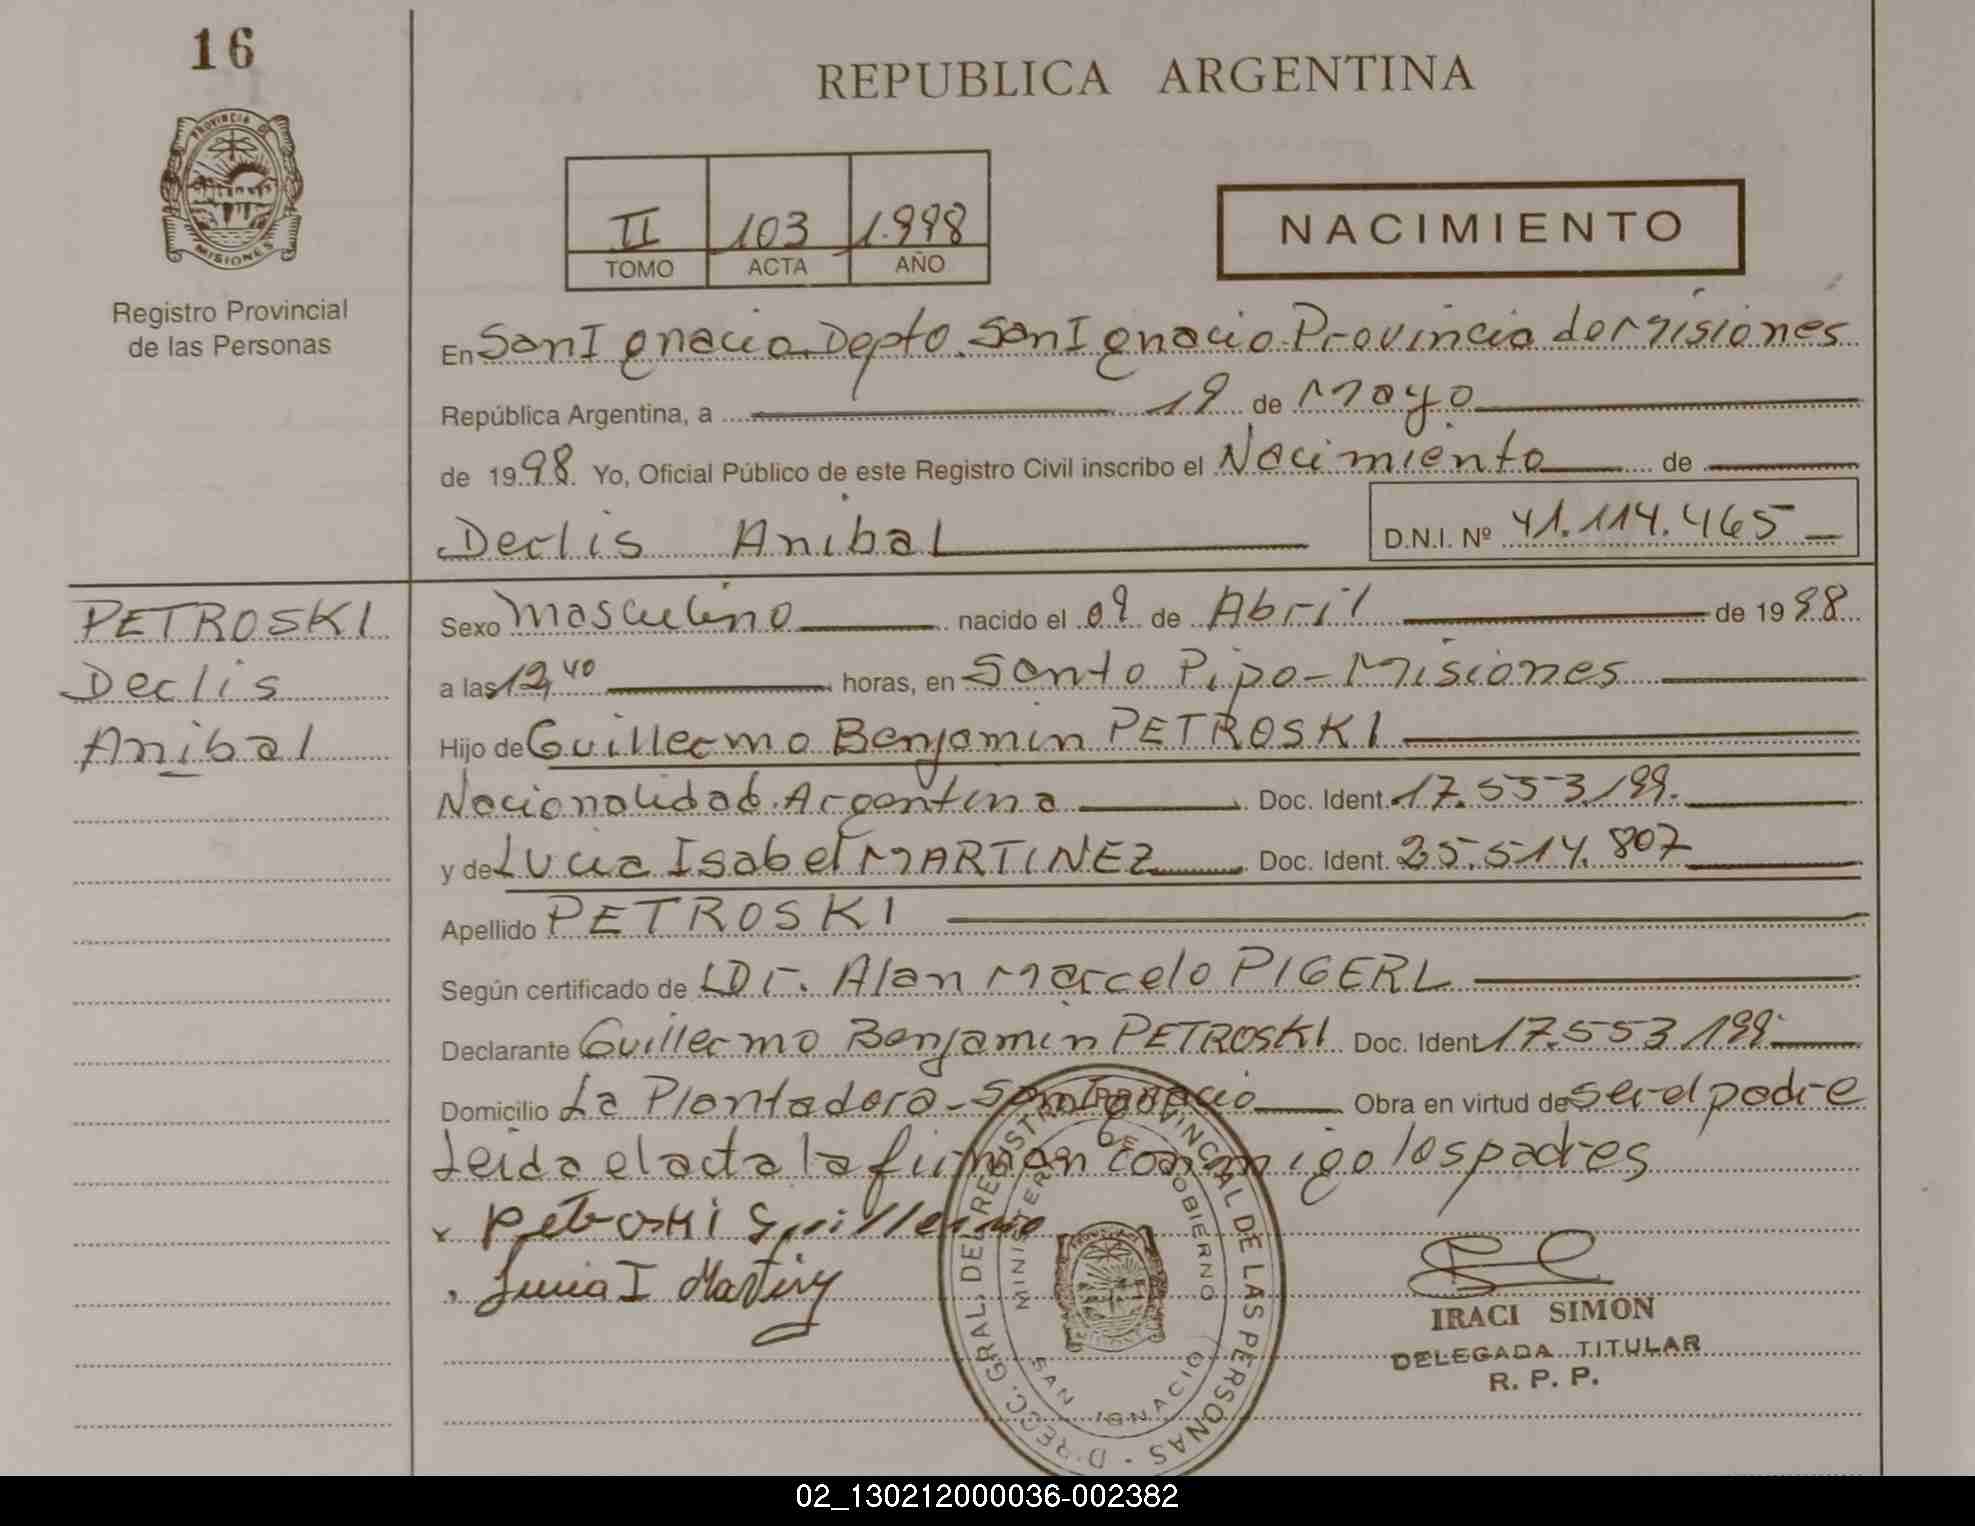 16
PROVINCIA DE
MISIONES
Registro Provincial
de las Personas
REPUBLICA ARGENTINA
II 103 1.998
TOMO ACTA AÑO
NACIMIENTO
En San Ignacio Depto. San Ignacio Provincia de Misiones
República Argentina, a 19 de Mayo
de 1998 Yo, Oficial Público de este Registro Civil inscribo el Nacimiento de
Derlis Anibal D.N.I. Nº 41.114.465
PETROSKI
Derlis
Anibal
Sexo Masculino nacido el 09 de Abril de 1998
a las 12,40 horas, en Santo Pipo - Misiones
Hijo de Guillermo Benjamin PETROSKI
Nacionalidad Argentina Doc. Ident. 17.553.199.
y de Lucia Isabel MARTINEZ Doc. Ident. 25.514.807
Apellido PETROSKI
Según certificado de Dr. Alan Marcelo PIGERL
Declarante Guillermo Benjamin PETROSKI Doc. Ident 17.553.199.
Domicilio La Plantadora - San Ignacio Obra en virtud de ser el padre
Leida el acta la firman conmigo los padres
x Petroski Guillermo
Lucia I Martinez
DIRECC. GRAL. DEL REGISTRO PROVINCIAL DE LAS PERSONAS
MINISTERIO DE GOBIERNO
SAN IGNACIO
IRACI SIMON
DELEGADA TITULAR
R. P. P.
02_130212000036-002382